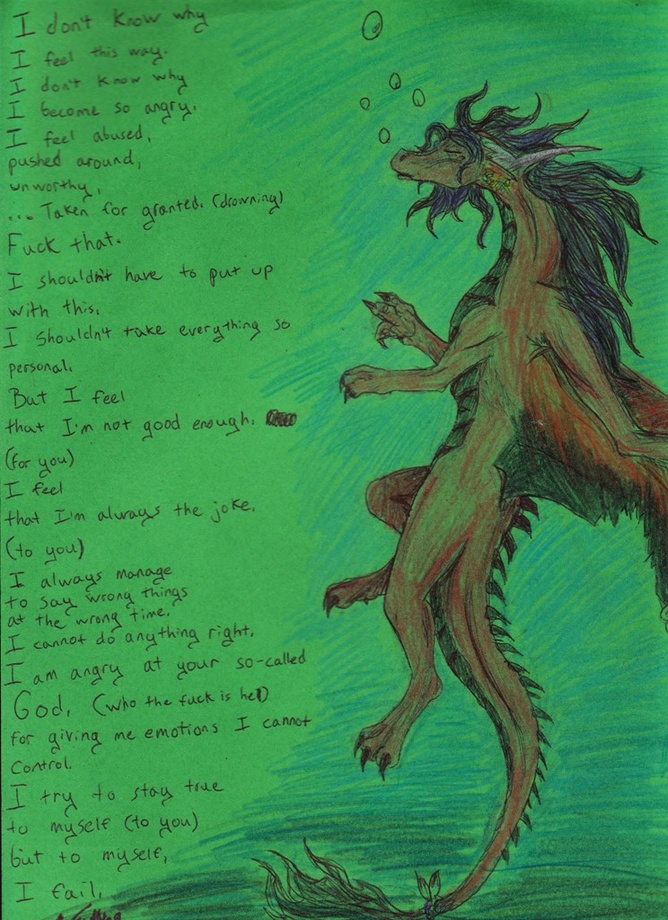 I don't know why
I feel this way.
I don't know why
I become so angry.
I feel abused,
pushed around,
unworthy,
... Taken for granted. (drowning)
Fuck that.
I shouldn't have to put up
with this.
I shouldn't take everything so
personal.
But I feel
that I'm not good enough.
(for you)
I feel
that I'm always the joke.
(to you)
I always manage
to say wrong things
at the wrong time.
I cannot do anything right.
I am angry at your so-called
God, (who the fuck is he!)
for giving me emotions I cannot
control.
I try to stay true
to myself (to you)
but to myself,
I fail.